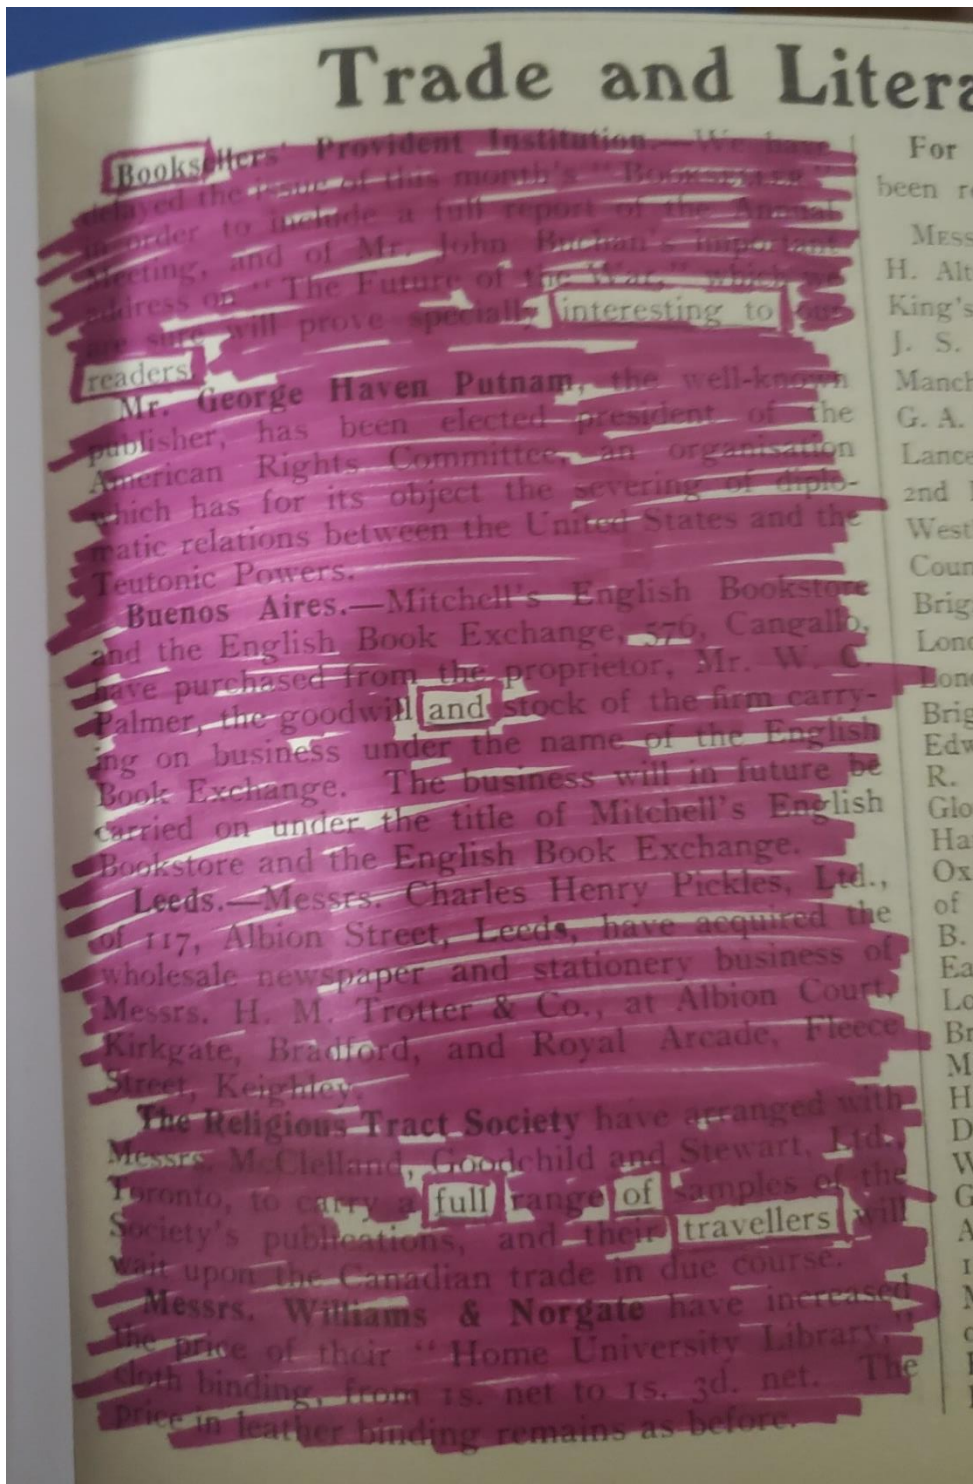 Trade and Litera
Booksellers' Provident Institution.—We have
delayed the issue of this month's "BOOKSELLER"
in order to include a full report of the Annual
Meeting, and of Mr. John Buchan's important
address on "The Future of the War," which we
are sure will prove specially interesting to our
readers.
Mr. George Haven Putnam, the well-known
publisher, has been elected president of the
American Rights Committee, an organisation
which has for its object the severing of diplo-
matic relations between the United States and the
Teutonic Powers.
Buenos Aires.—Mitchell's English Bookstore
and the English Book Exchange, 576, Cangallo,
have purchased from the proprietor, Mr. W. C.
Palmer, the goodwill and stock of the firm carry-
ing on business under the name of the English
Book Exchange. The business will in future be
carried on under the title of Mitchell's English
Bookstore and the English Book Exchange.
Leeds.—Messrs. Charles Henry Pickles, Ltd.,
of 117, Albion Street, Leeds, have acquired the
wholesale newspaper and stationery business of
Messrs. H. M. Trotter & Co., at Albion Court,
Kirkgate, Bradford, and Royal Arcade, Fleece
Street, Keighley.
The Religious Tract Society have arranged with
Messrs. McClelland, Goodchild and Stewart, Ltd.,
Toronto, to carry a full range of samples of the
Society's publications, and their travellers will
wait upon the Canadian trade in due course.
Messrs. Williams & Norgate have increased
the price of their "Home University Library,"
cloth binding, from 1s. net to 1s. 3d. net. The
price in leather binding remains as before.
For
been r
MESS
H. Alt
King's
J. S.
Manch
G. A.
Lance
2nd
West
Coun
Brig
Lond
Lond
Brig
Edw
R.
Glo
Ha
Ox
of
B.
Ea
Lo
Br
M
H
D
W
G
A